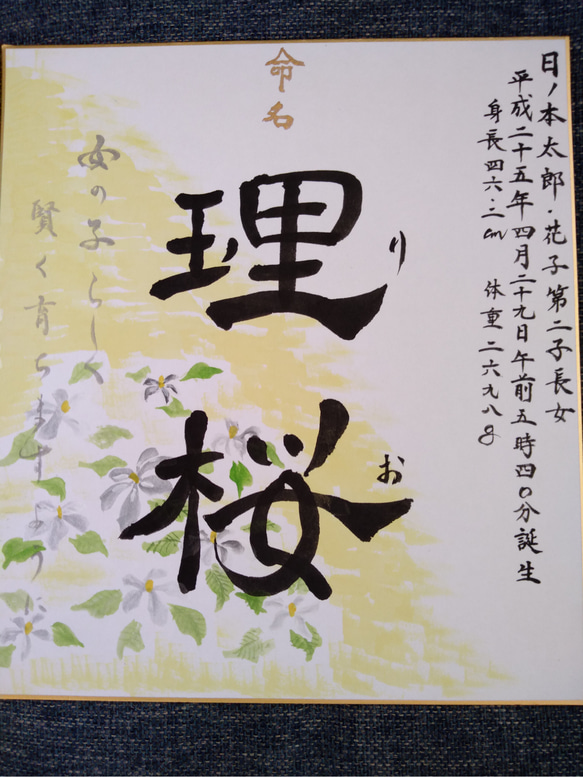 日ノ本太郎・花子第二子長女
平成二十五年四月二十九日午前五時四〇分誕生
身長四六.二cm 体重二六九八g
命名
理桜
りお
女の子らしく
賢く育ちますように